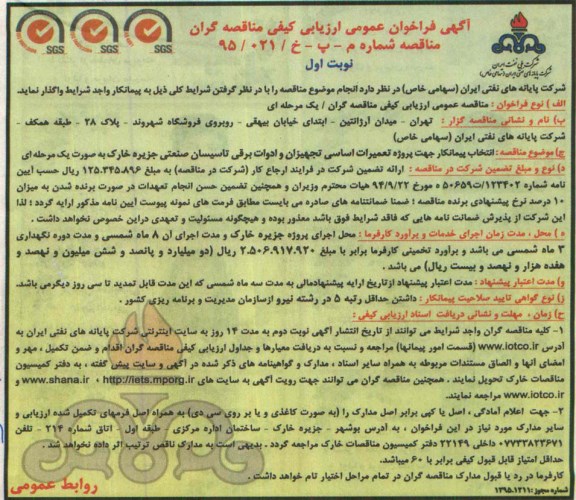 آگهی فراخوان عمومی ارزیابی کیفی مناقصه گران
مناقصه شماره م - پ - خ / ۰۲۱ / ۹۵
نوبت اول
SGS SGS SGS
شرکت ملی نفت ایران
شرکت پایانه های نفتی ایران (سهامی خاص)
شرکت پایانه های نفتی ایران (سهامی خاص) در نظر دارد انجام موضوع مناقصه را با در نظر گرفتن شرایط کلی ذیل به پیمانکار واجد شرایط واگذار نماید.
الف) نوع فراخوان : مناقصه عمومی ارزیابی کیفی مناقصه گران / یک مرحله ای
ب) نام و نشانی مناقصه گزار : تهران - میدان آرژانتین - ابتدای خیابان بیهقی - روبروی فروشگاه شهروند - پلاک ۲۸ - طبقه همکف -
شرکت پایانه های نفتی ایران (سهامی خاص)
ج) موضوع مناقصه: انتخاب پیمانکار جهت پروژه تعمیرات اساسی تجهیزان و ادوات برقی تاسیسان صنعتی جزیره خارک به صورت یک مرحله ای
د) نوع و مبلغ تضمین شرکت در مناقصه : ارائه تضمین شرکت در فرایند ارجاع کار (شرکت در مناقصه) به مبلغ ۱۲۵.۳۴۵.۸۹۶ ریال حسب آیین
نامه شماره ۱۲۳۴۰۲/ت۵۰۶۵۹ ه مورخ ۹۴/۹/۲۲ هیات محترم وزیران و همچنین تضمین حسن انجام تعهدات در صورت برنده شدن به میزان
۱۰ درصد نرخ پیشنهادی برنده مناقصه ؛ ضمنا ضمانتنامه های صادره می بایست مطابق فرمت های نمونه پیوست آیین نامه مذکور ارایه گردد ؛ لذا
این شرکت از پذیرش ضمانت نامه هایی که فاقد شرایط فوق باشد معذور بوده و هیچگونه مسئولیت و تعهدی دراین خصوص نخواهد داشت .
ه ) محل ، مدت زمان اجرای خدمات و برآورد کارفرما : محل اجرای پروژه جزیره خارک و مدت اجرای آن ۸ ماه شمسی و مدت دوره نگهداری
۳ ماه شمسی می باشد و برآورد تخمینی کارفرما برابر با مبلغ ۲.۵۰۶.۹۱۷.۹۲۰ ریال (دو میلیارد و پانصد و شش میلیون و نهصد و
هفده هزار و نهصد و بیست ریال) می باشد .
و) مدت اعتبار پیشنهاد : مدت اعتبار پیشنهاد ازتاریخ ارایه پیشنهادمالی به مدت سه ماه شمسی که این مدت قابل تمدید تا سی روز دیگرمی باشد.
ز) نوع گواهی تایید صلاحیت پیمانکار : داشتن حداقل رتبه ۵ در رشته نیرو ازسازمان مدیریت و برنامه ریزی کشور .
ح) زمان ، مهلت و نشانی دریافت اسناد ارزیابی کیفی :
۱- کلیه مناقصه گران واجد شرایط می توانند از تاریخ انتشار آگهی نوبت دوم به مدت ۱۴ روز به سایت اینترنتی شرکت پایانه های نفتی ایران به
آدرس www.iotco.ir (قسمت امور پیمانها) مراجعه و نسبت به دریافت معیارها و جداول ارزیابی کیفی مناقصه گران اقدام و ضمن تکمیل ، مهر و
امضای آنها و الصاق مستندات مربوطه به همراه سایر اسناد ، مدارک و گواهینامه های ذکر شده در آگهی و سایت پیش گفته ، به دفتر کمیسیون
مناقصات خارک تحویل نمایند . همچنین مناقصه گران می توانند جهت رویت آگهی به سایت های http://iets.mporg.ir ، www.shana.ir و
www.iotco.ir مراجعه نمایند.
۲- جهت اعلام آمادگی ، اصل یا کپی برابر اصل مدارک را (به صورت کاغذی و یا بر روی سی دی) به همراه اصل فرمهای تکمیل شده ارزیابی و
سایر مدارک مورد نیاز در این فراخوان ، به آدرس بوشهر - جزیره خارک - ساختمان اداره مرکزی - طبقه اول - اتاق شماره ۲۱۴ - تلفن
۰۷۷۳۳۸۲۳۶۷۱ داخلی ۲۲۱۴۹ دفتر کمیسیون مناقصات خارک مراجعه گردد . بدیهی است به مدارک ناقص ترتیب اثر داده نخواهد شد .
حداقل امتیاز قابل قبول کیفی برابر با ۶۰ میباشد.
کارفرما در رد یا قبول مدارک مناقصه گران در تمام مراحل اختیار تام خواهد داشت .
شماره مجوز : ۱۳۹۵.۱۲۱۱
روابط عمومی